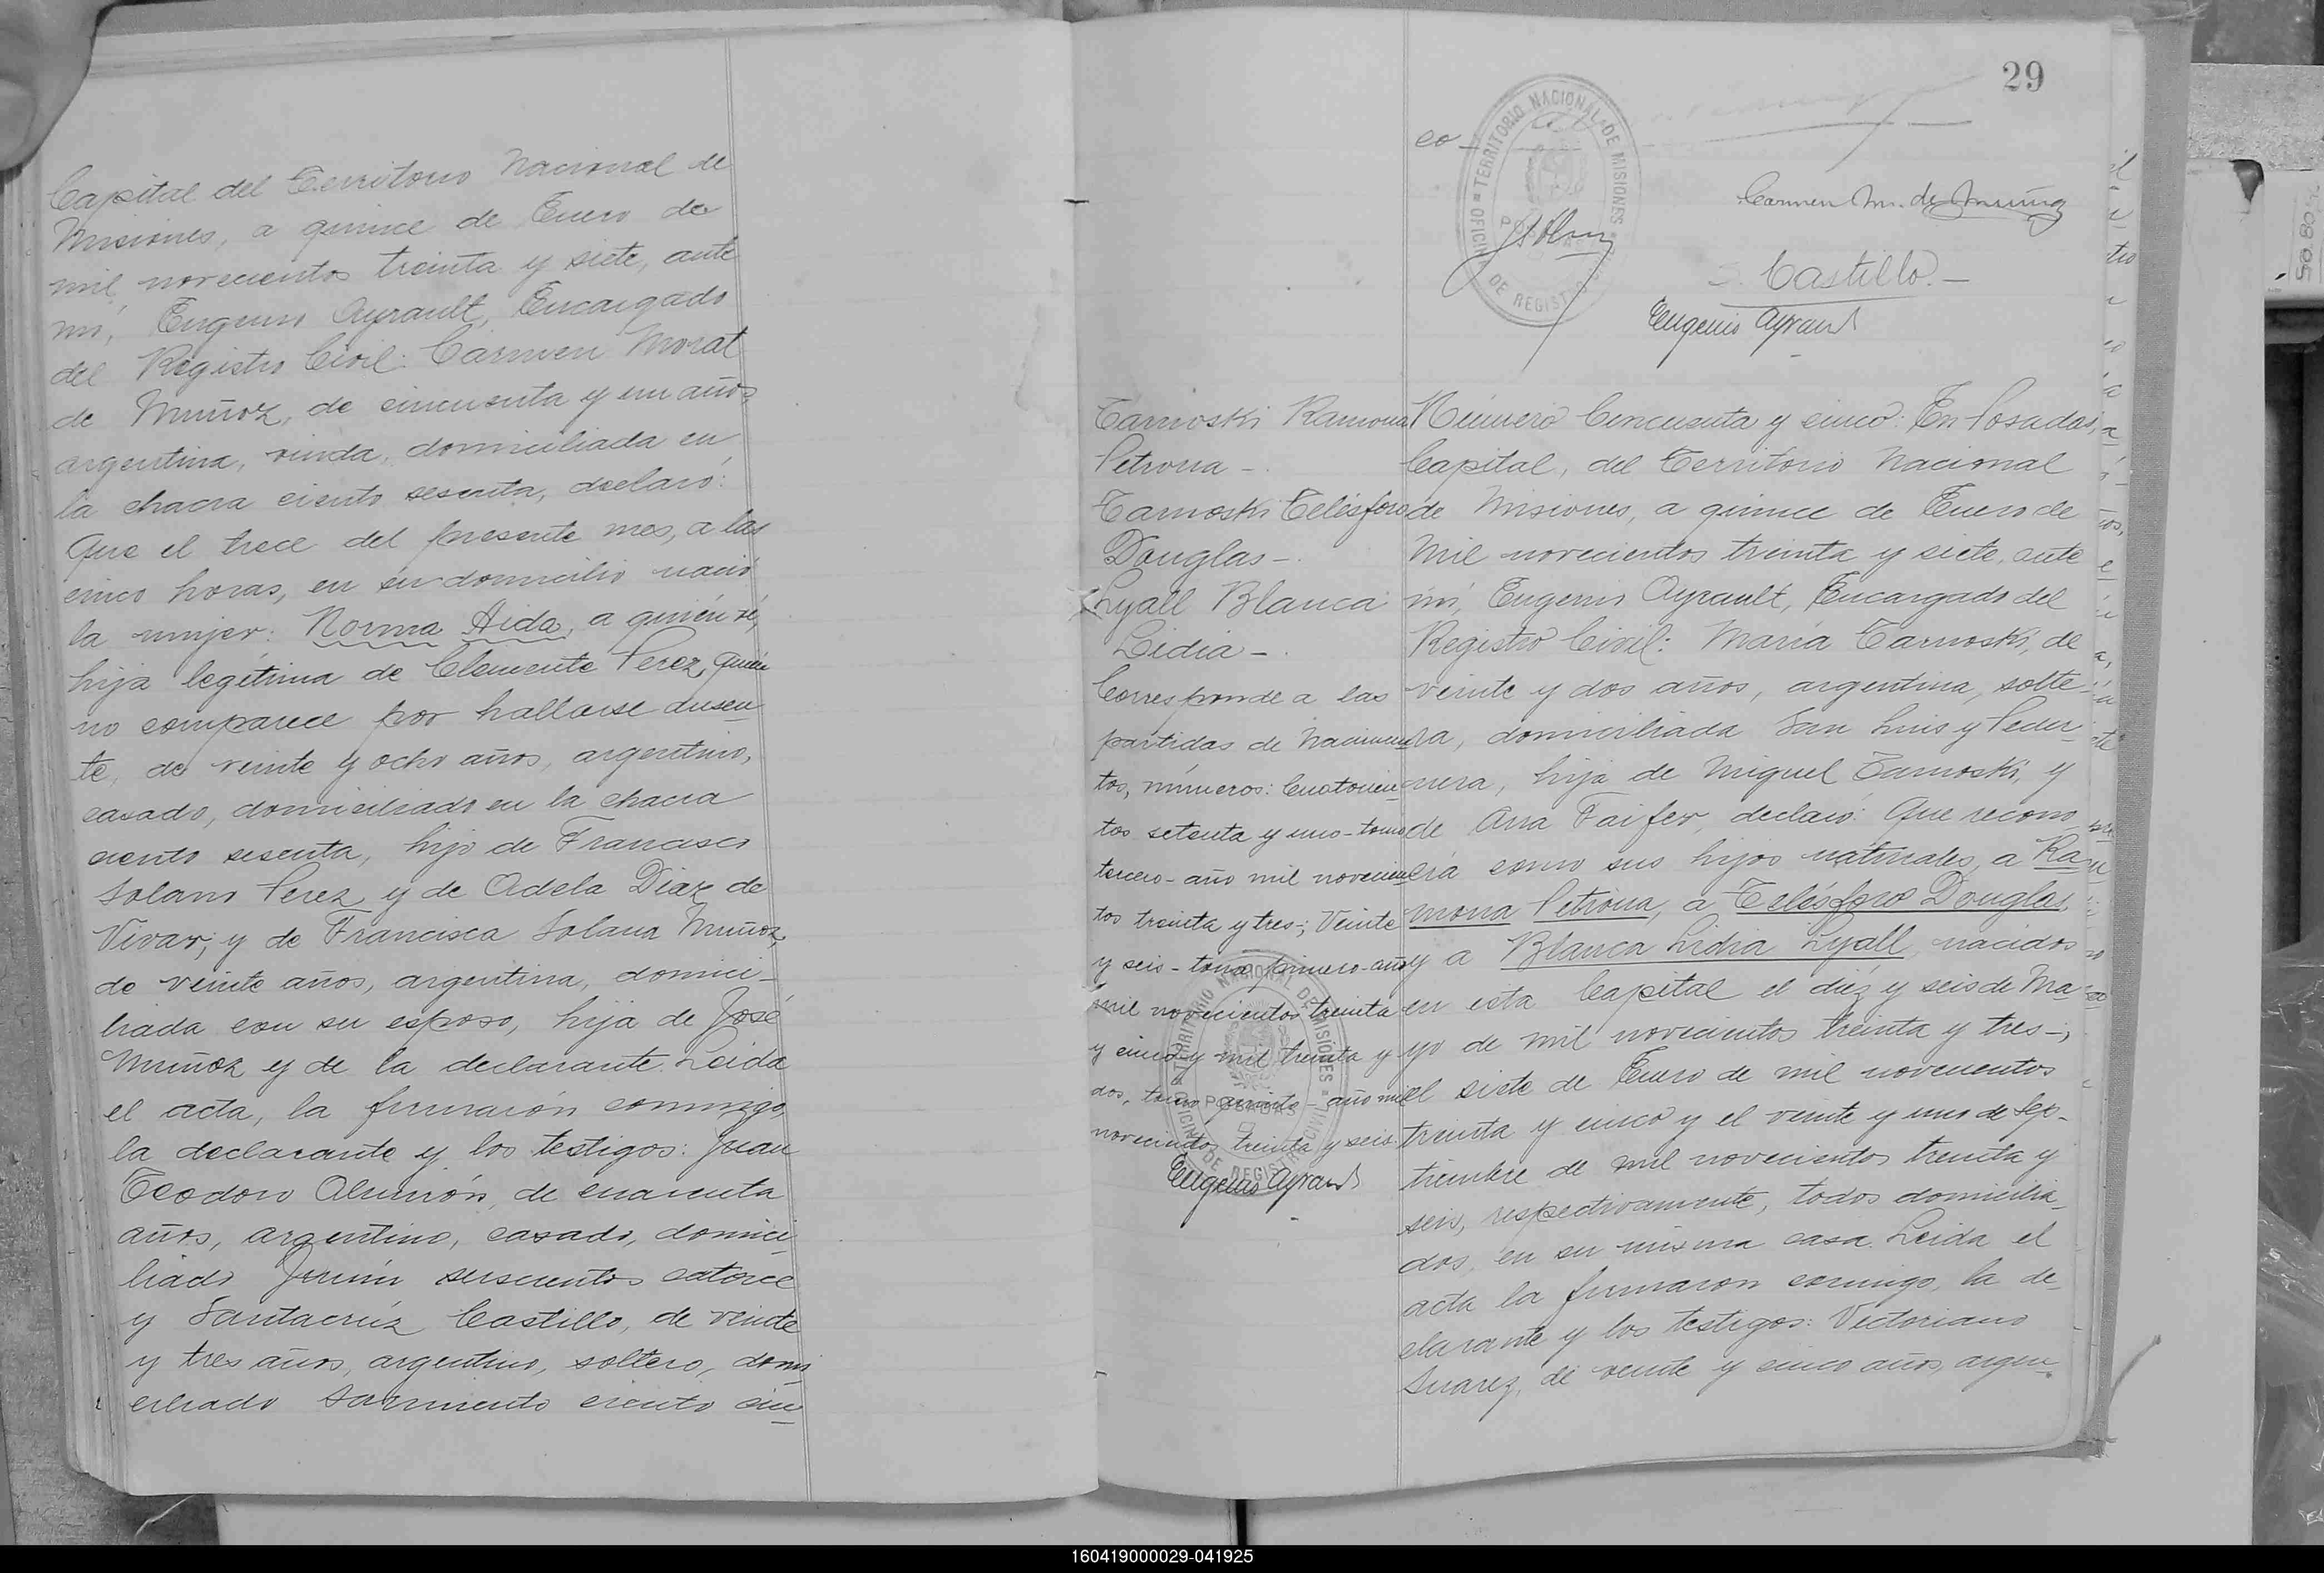 Capital del Territorio Nacional de
Misiones, a quince de Enero de
mil novecientos treinta y siete, ante
mí, Eugenio Ayrault, Encargado
del Registro Civil: Carmen Morat
de Muñoz, de cincuenta y un años,
argentina, viuda, domiciliada en
la chacra ciento sesenta, declaró:
Que el trece del presente mes, a las
cinco horas, en su domicilio nació
la mujer: Norma Aida, a quién ví,
hija legítima de Clemente Perez, quién
no comparece por hallarse ausen
te, de veinte y ocho años, argentino,
casado, domiciliado en la chacra
ciento sesenta, hijo de Francisco
Solano Perez y de Adela Diaz de
Vivar; y de Francisca Solana Muñoz,
de veinte años, argentina, domici-
liada con su esposo, hija de José
Muñoz y de la declarante. Leida
el acta, la firmaron conmigo,
la declarante y los testigos: Juan
Teodoro Almirón, de cuarenta
años, argentino, casado, domici-
liado Junín seiscientos catorce
y Santacrúz Castillo, de veinte
y tres años, argentino, soltero, domi
ciliado Sarmiento ciento cin
29
co
TERRITORIO NACIONAL DE MISIONES
OFICINA DE REGISTRO CIVIL
POSADAS
Carmen M. de Muñoz
S. Castillo.-
Eugenio Ayrault
Tarnoski Ramona
Petrona -
Tarnoski Telésforo
Douglas -
Lyall Blanca
Lidia -
Corresponde a las
partidas de Nacimien
tos, números: Cuatrocien
tos setenta y uno - tomo
tercero - año mil novecien
tos treinta y tres -; Veinte
y seis - tomo primero - año
mil novecientos treinta
y cinco y mil treinta y
dos, tomo quinto - año mil
novecientos treinta y seis.
Eugenio Ayrault
TERRITORIO NACIONAL DE MISIONES
OFICINA DE REGISTRO CIVIL
POSADAS
Número Cincuenta y cinco: En Posadas,
Capital, del Territorio Nacional
de Misiones, a quince de Enero de
mil novecientos treinta y siete, ante
mí, Eugenio Ayrault, Encargado del
Registro Civil: María Tarnoski, de
veinte y dos años, argentina, solte-
ra, domiciliada San Luis y Peder-
nera, hija de Miguel Tarnoski, y
de Ana Faifer, declaró: Que recono
cía como sus hijos naturales, a Ra
mona Petrona, a Telésforo Douglas,
y a Blanca Lidia Lyall, nacidos
en esta Capital el diéz y seis de Ma
yo de mil novecientos treinta y tres -;
el siete de Enero de mil novecientos
treinta y cinco y el veinte y uno de Sep-
tiembre de mil novecientos treinta y
seis, respectivamente, todos domicilia
dos en su misma casa. Leida el
acta la firmaron conmigo, la de
clarante y los testigos: Victoriano
Suarez, de veinte y cinco años, argen
160419000029-041925